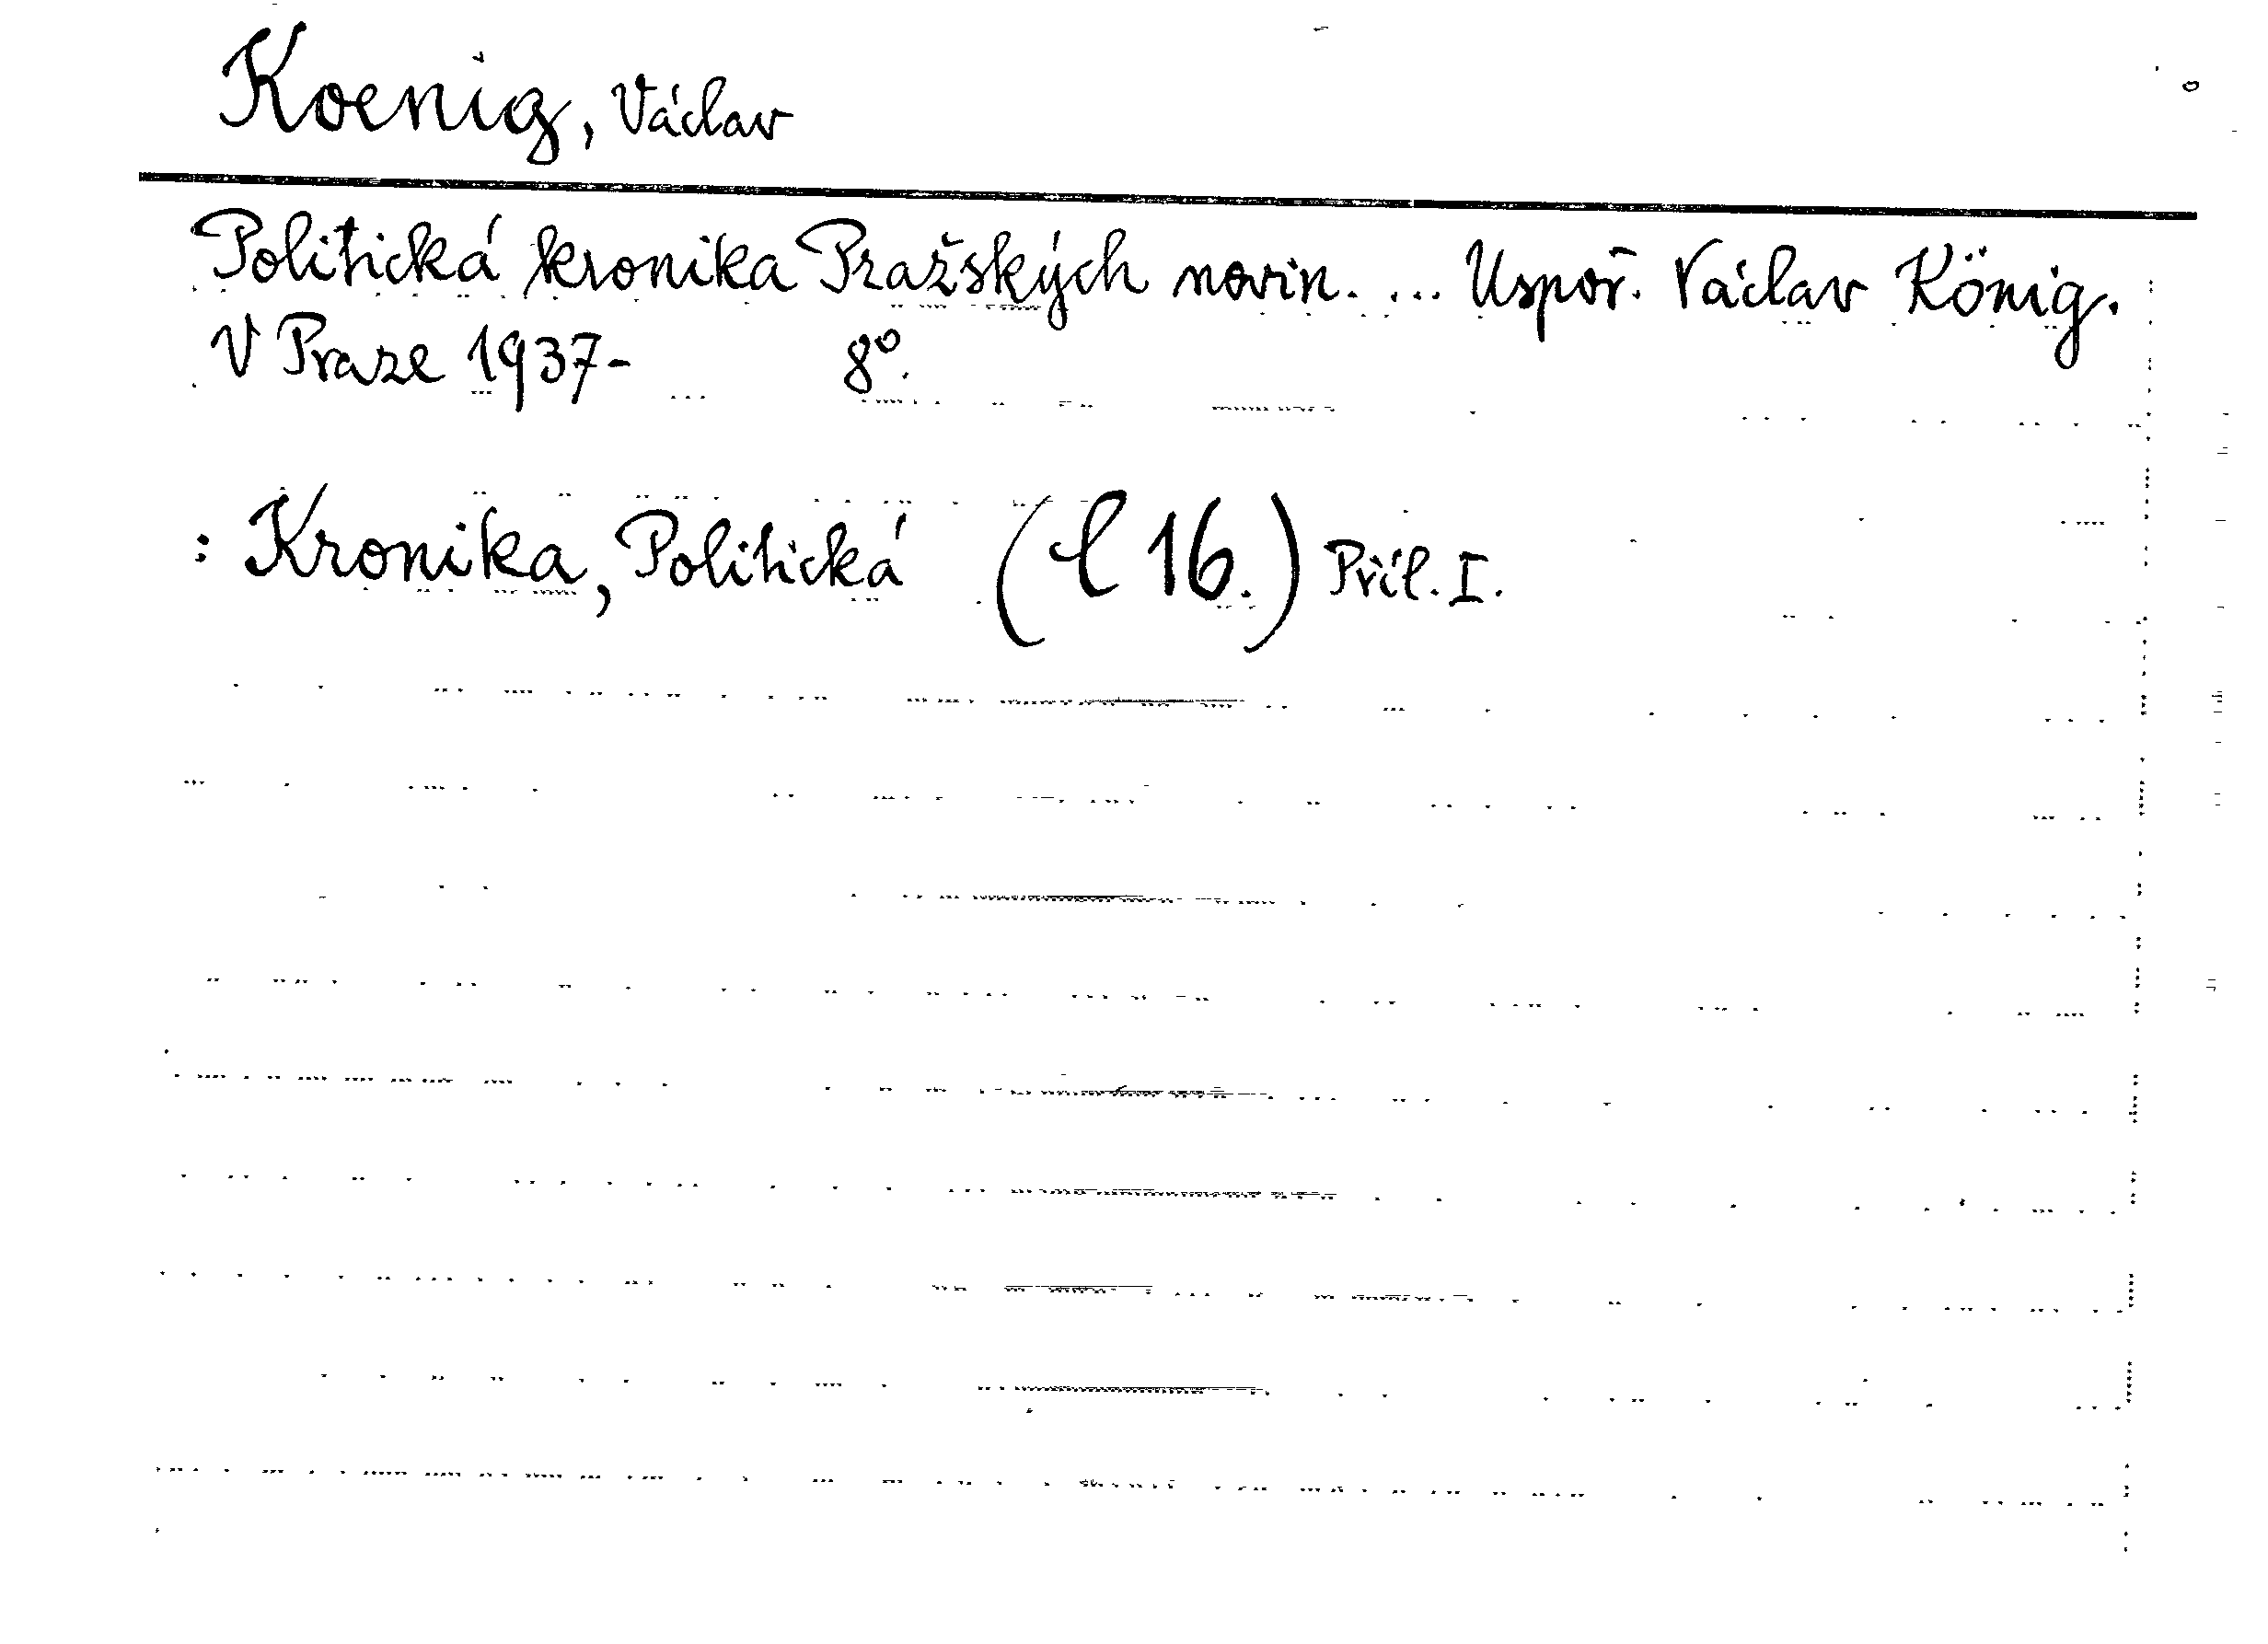 Koenig, Václav
Politická kronika Pražských novin. ... Uspoř. Václav König.
V Praze 1937- 8°.
: Kronika, Politická (l 16.) Příl. I.